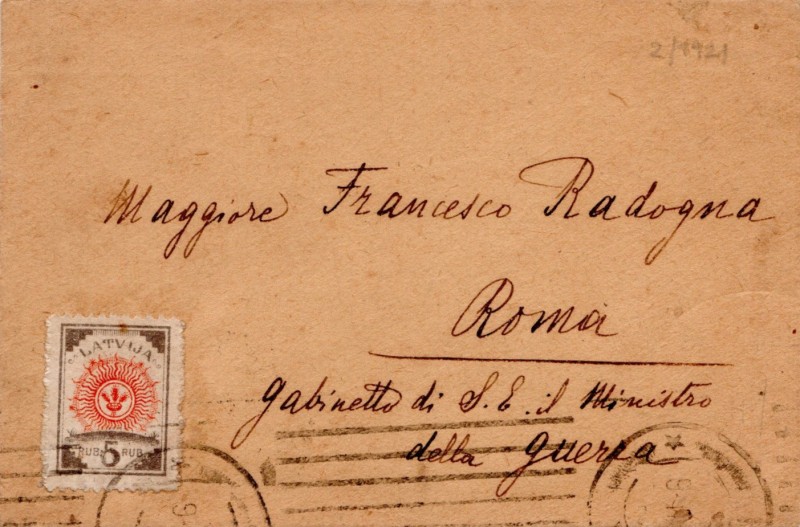 2/1921
Maggiore Francesco Radogna
Roma
Gabinetto di S. E. il Ministro
della Guerra
LATVIJA
RUB. 5 RUB.